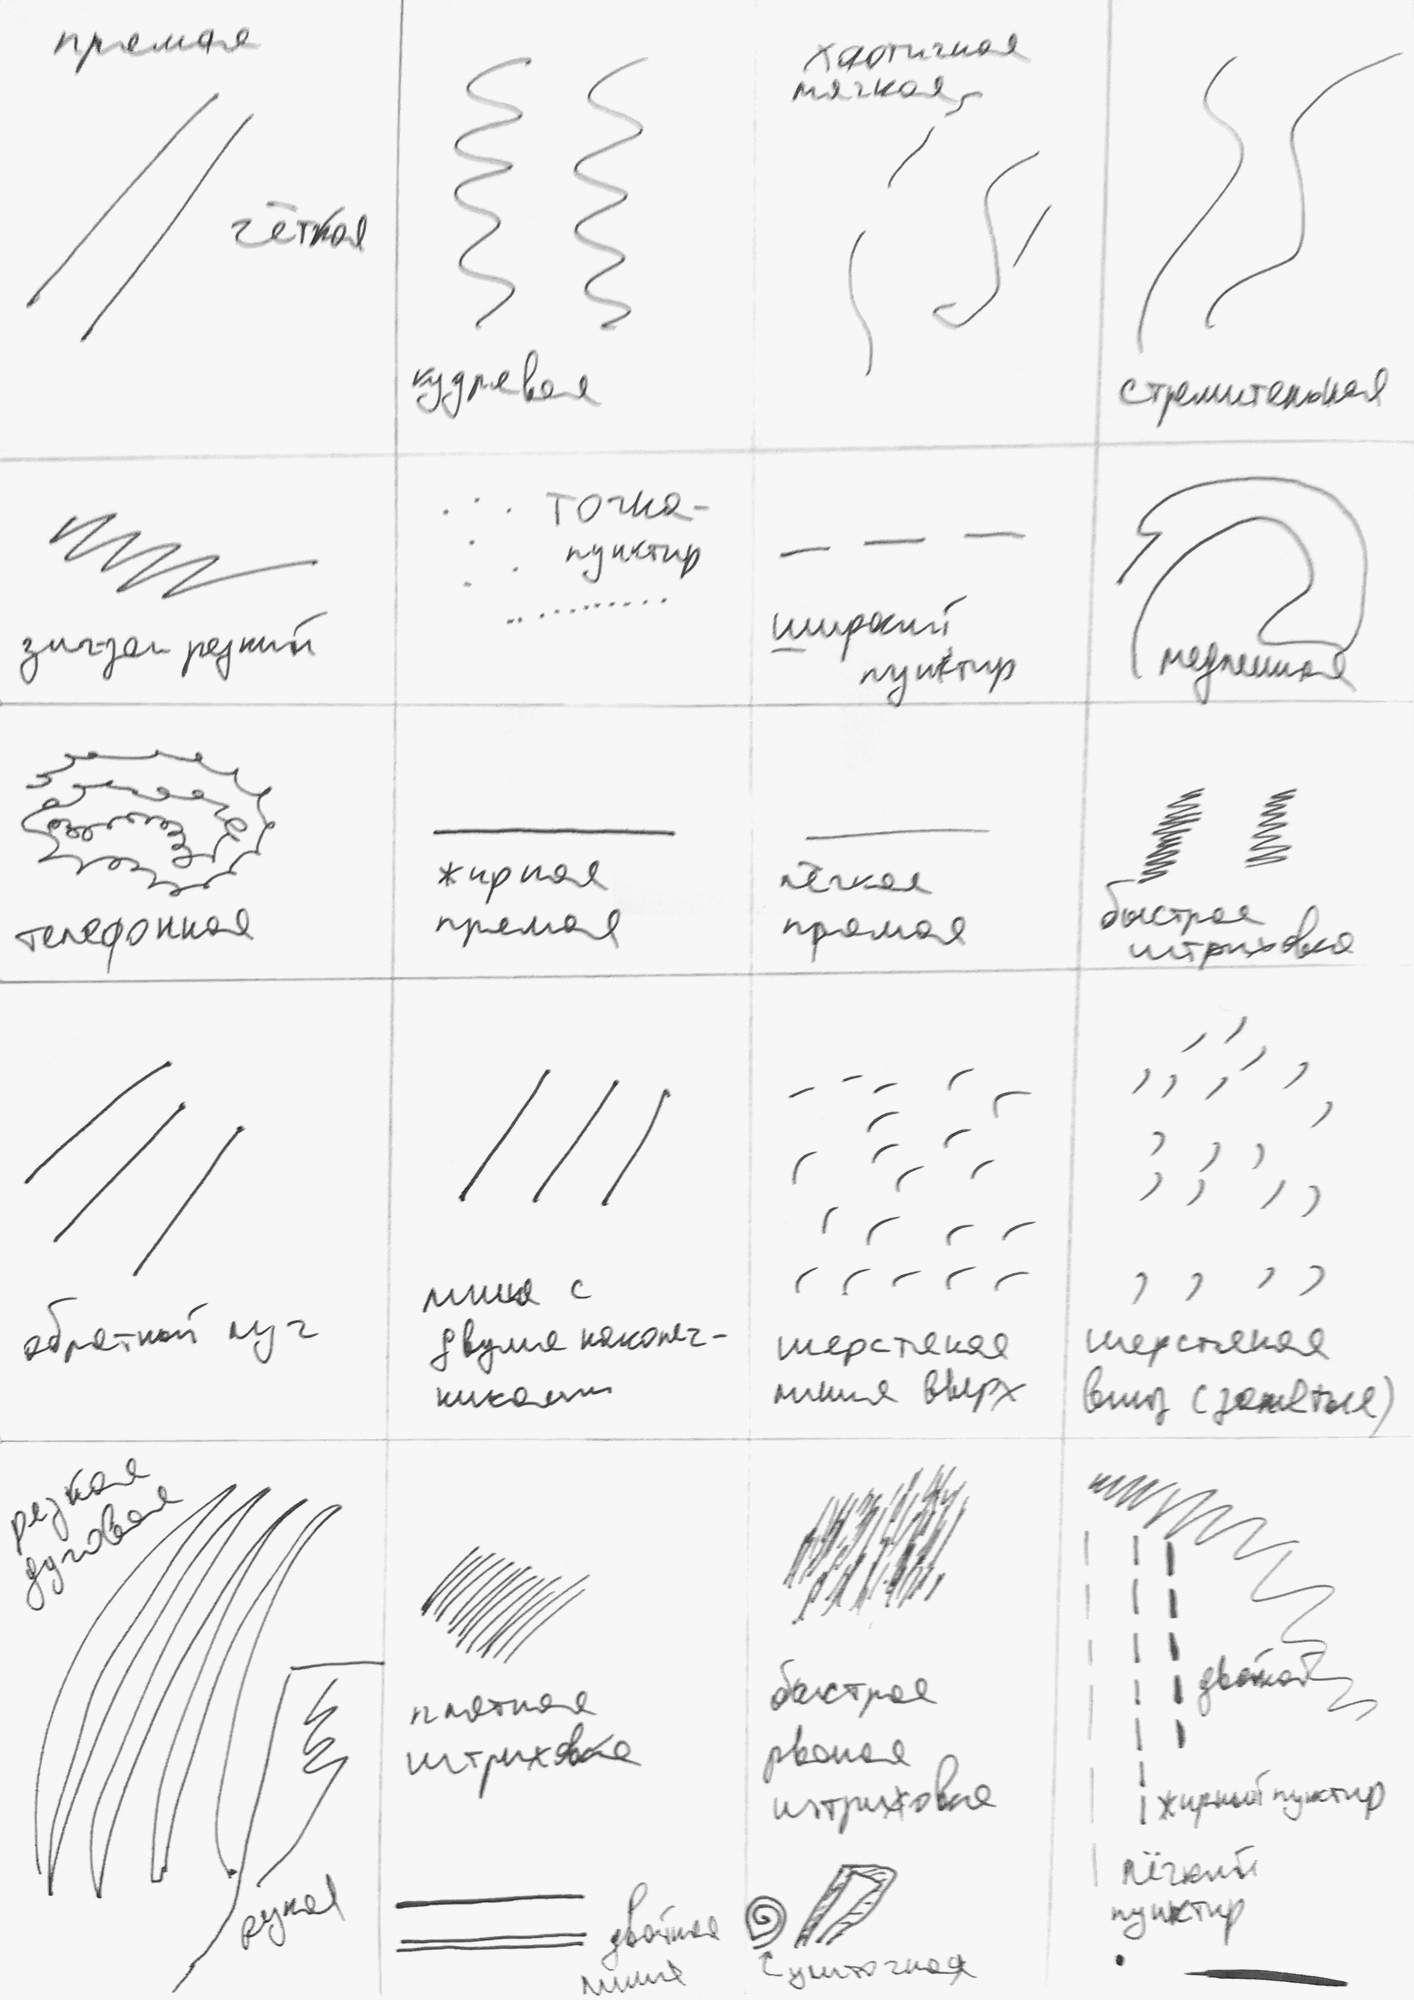 прямая
чёткая
кудрявая
хаотичная
мягкая
стремительная
зиг-заг резкий
точка-
пунктир
широкий
пунктир
медленная
телефонная
жирная
прямая
лёгкая
прямая
быстрая
штриховка
обратный луч
линия с
двумя наконеч-
никами
шерстяная
линия вверх
шерстяная
вниз (
резкая
дуговая
резкая
плотная
штриховка
быстрая
рваная
штриховка
двойной
жирный пунктир
лёгкий
пунктир
двойная
линия
улиточная